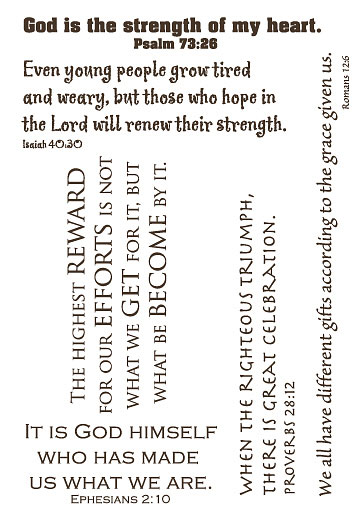 God is the strength of my heart.
Psalm 73:26
Even young people grow tired
and weary, but those who hope in
the Lord will renew their strength.
Isaiah 40:30
THE HIGHEST REWARD
FOR OUR EFFORTS IS NOT
WHAT WE GET FOR IT, BUT
WHAT BE BECOME BY IT.
IT IS GOD HIMSELF
WHO HAS MADE
US WHAT WE ARE.
EPHESIANS 2:10
WHEN THE RIGHTEOUS TRIUMPH,
THERE IS GREAT CELEBRATION.
PROVERBS 28:12
We all have different gifts according to the grace given us.
Romans 12:6